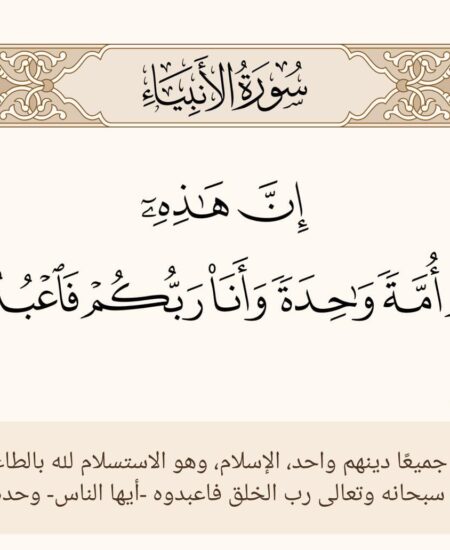 سُورَةُ الأَنبِيَاءِ
إِنَّ هَـٰذِهِۦٓ
أُمَّةٗ وَٰحِدَةٗ وَأَنَا۠ رَبُّكُمۡ
جميعًا دينهم واحد، الإسلام، وهو الاستسلام لله
سبحانه وتعالى رب الخلق فاعبدوه -أيها الناس-